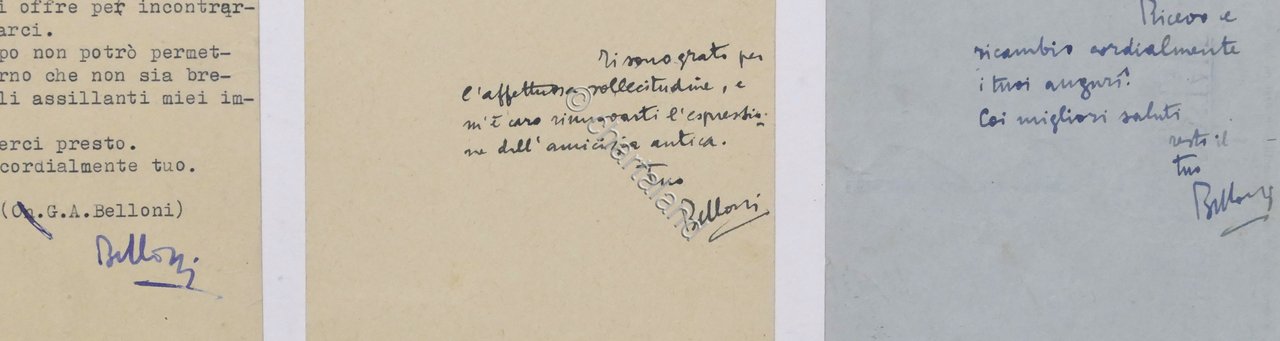 i offre per incontrar-
arci.
po non potrò permet-
rno che non sia bre-
li assillanti miei im-
erci presto.
cordialmente tuo.
(On.G.A.Belloni)
Belloni
Ti sono grato per
l'affettuosa sollecitudine, e
m'è caro rinnovarti l'espressio-
ne dell'amicizia antica.
tuo
Belloni
© chartaland
Ricevo e
ricambio cordialmente
i tuoi auguri!
Coi migliori saluti
resto il
tuo
Belloni